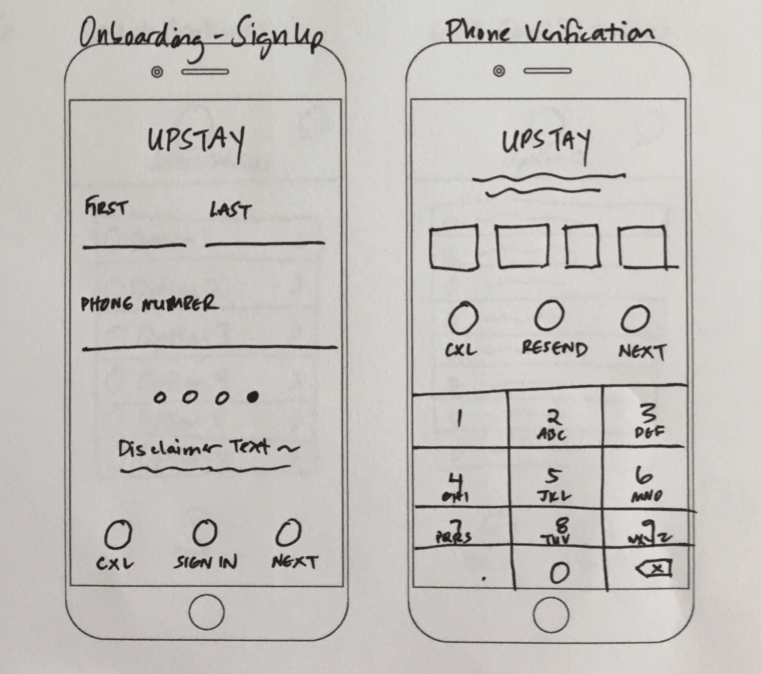 Onboarding - Sign Up
UPSTAY
FIRST LAST
PHONE NUMBER
Disclaimer Text ~
CXL SIGN IN NEXT
Phone Verification
UPSTAY
CXL RESEND NEXT
1 2 3
ABC DEF
4 5 6
GHI JKL MNO
7 8 9
PQRS TUV WXYZ
0